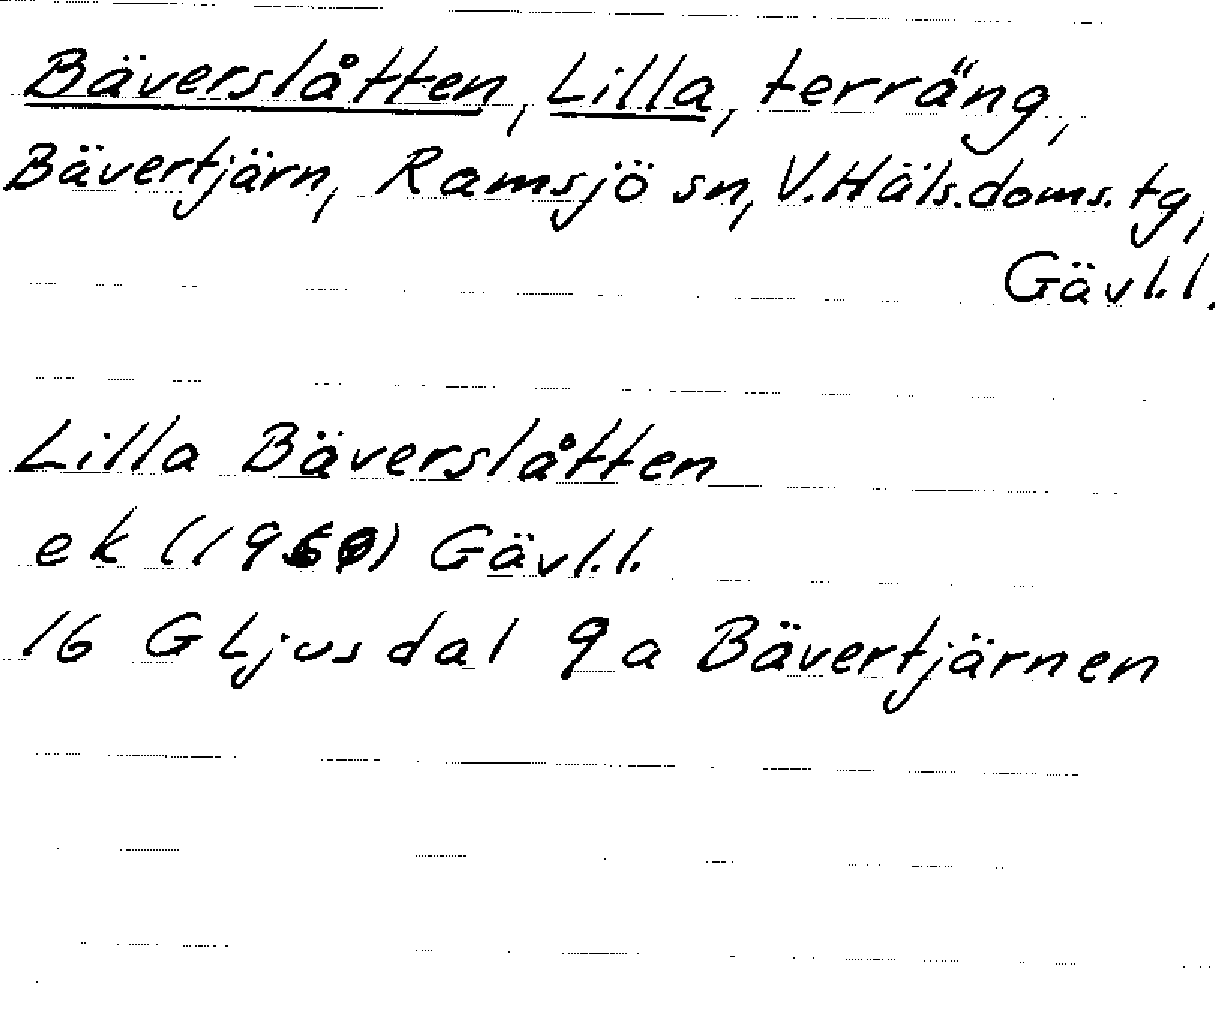 Bäverslåtten, Lilla, terräng,
Bävertjärn, Ramsjö sn, V.Häls.doms.tg,
Gävl.l.
Lilla Bäverslåtten
ek (1959) Gävl.l.
16 G Ljusdal 9a Bävertjärnen